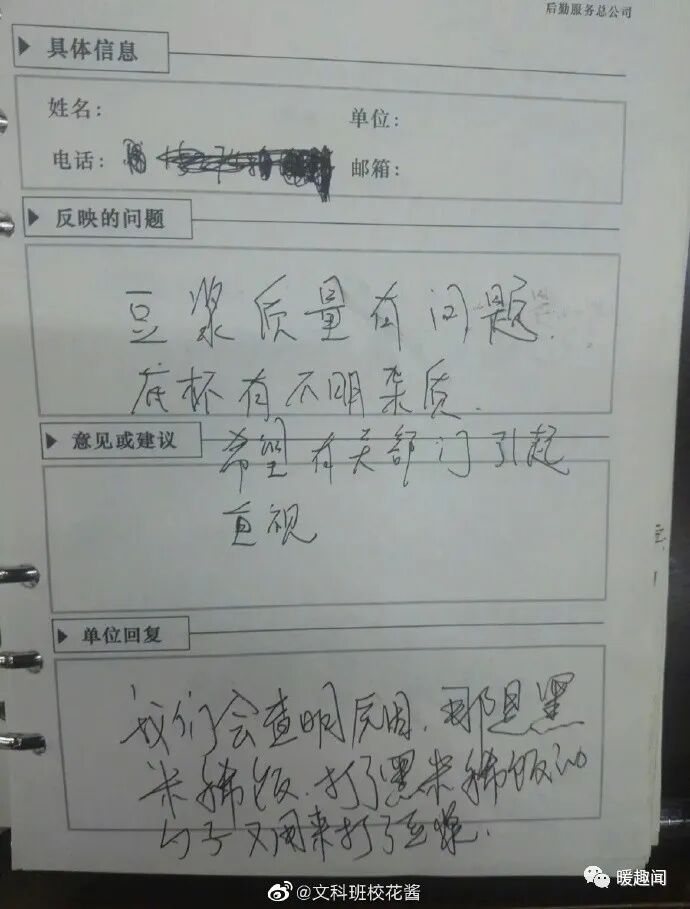 后勤服务总公司
具体信息
姓名：
单位：
电话：
邮箱：
反映的问题
豆浆质量有问题.
底杯有不明杂质.
意见或建议
希望有关部门引起
重视
单位回复
我们会查明原因.那是黑
米稀饭.打了黑米稀饭的
勺子又用来打了豆浆.
@文科班校花酱
暖趣闻